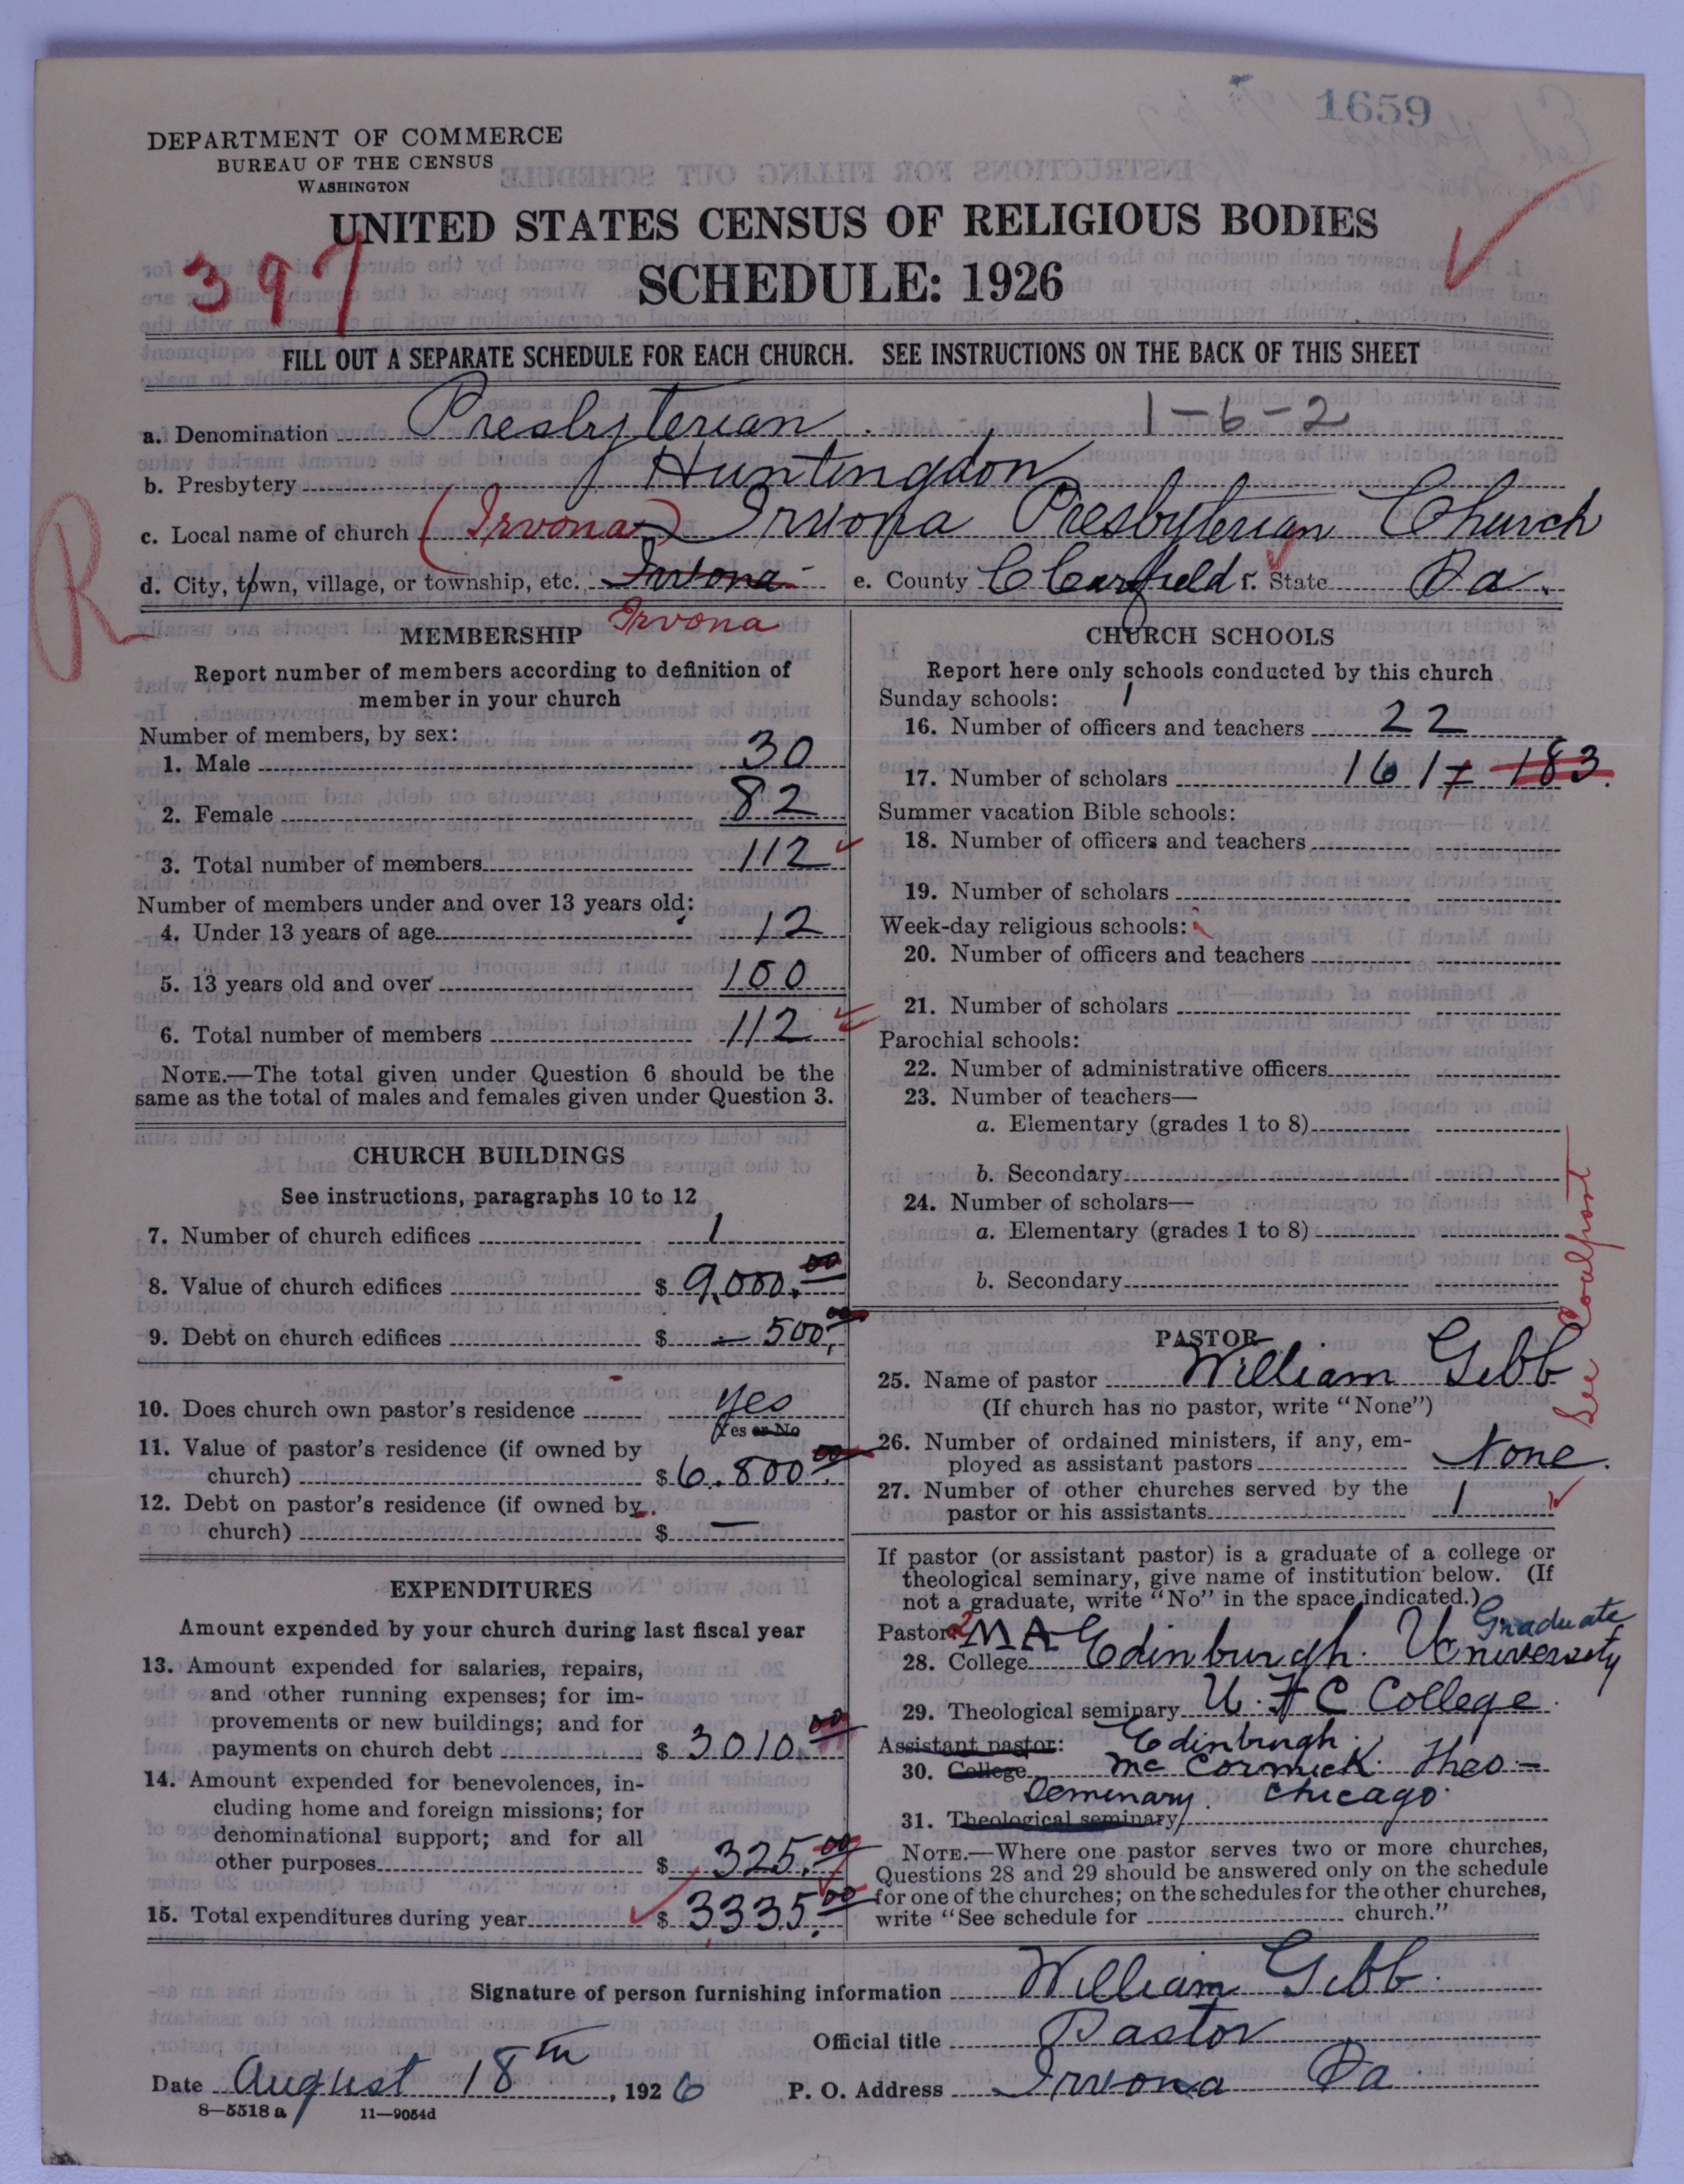 1659
DEPARTMENT OF COMMERCE
BUREAU OF THE CENSUS
WASHINGTON
UNITED STATES CENSUS OF RELIGIOUS BODIES
397
SCHEDULE: 1926
FILL OUT A SEPARATE SCHEDULE FOR EACH CHURCH. SEE INSTRUCTIONS ON THE BACK OF THIS SHEET
a. Denomination Presbyterian 1-6-2
b. Presbytery Huntingdon
c. Local name of church (Irvona) Irvona Presbyterian Church
d. City, town, village, or township, etc. Irvona e. County Clearfield f. State Pa.
Irvona
R
MEMBERSHIP
Report number of members according to definition of
member in your church
Number of members, by sex:
1. Male 30
2. Female 82
3. Total number of members 112
Number of members under and over 13 years old:
4. Under 13 years of age 12
5. 13 years old and over 100
6. Total number of members 112
NOTE.—The total given under Question 6 should be the
same as the total of males and females given under Question 3.
CHURCH BUILDINGS
See instructions, paragraphs 10 to 12
7. Number of church edifices 1
8. Value of church edifices $ 9,000.00
9. Debt on church edifices $ — 500.00
10. Does church own pastor's residence yes
Yes or No
11. Value of pastor's residence (if owned by
church) $ 6.800.00
12. Debt on pastor's residence (if owned by
church) $ —
EXPENDITURES
Amount expended by your church during last fiscal year
13. Amount expended for salaries, repairs,
and other running expenses; for im-
provements or new buildings; and for
payments on church debt $ 3010.00
14. Amount expended for benevolences, in-
cluding home and foreign missions; for
denominational support; and for all
other purposes $ 325.00
15. Total expenditures during year $ 3335.00
CHURCH SCHOOLS
Report here only schools conducted by this church
Sunday schools: 1
16. Number of officers and teachers 22
17. Number of scholars 161 183.
Summer vacation Bible schools:
18. Number of officers and teachers
19. Number of scholars
Week-day religious schools:
20. Number of officers and teachers
21. Number of scholars
Parochial schools:
22. Number of administrative officers
23. Number of teachers—
a. Elementary (grades 1 to 8)
b. Secondary
24. Number of scholars—
a. Elementary (grades 1 to 8)
b. Secondary
See Coalport
PASTOR
25. Name of pastor William Gibb
(If church has no pastor, write "None")
26. Number of ordained ministers, if any, em-
ployed as assistant pastors None.
27. Number of other churches served by the
pastor or his assistants 1
If pastor (or assistant pastor) is a graduate of a college or
theological seminary, give name of institution below. (If
not a graduate, write "No" in the space indicated.)
Pastor: 2 MA Graduate
28. College Edinburgh University
29. Theological seminary U.F.C College.
Assistant pastor: Edinburgh.
30. College McCormick Theo-
Seminary. Chicago.
31. Theological seminary
NOTE.—Where one pastor serves two or more churches,
Questions 28 and 29 should be answered only on the schedule
for one of the churches; on the schedules for the other churches,
write "See schedule for church."
Signature of person furnishing information William Gibb.
Official title Pastor
Date August 18th, 1926 P. O. Address Irvona Pa.
8-5518 a 11—9054d